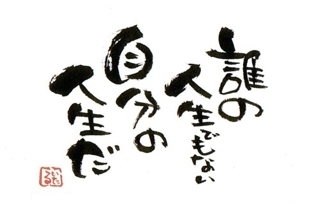 誰の
人生でもない
自分の
人生だ